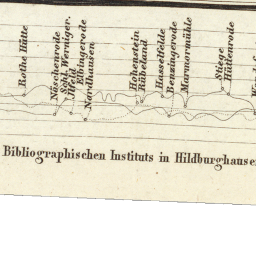 Rothe Hütte
Näschenrode
Schl. Werniger.
Ilfeld
Elbingerode
Nordhausen
Hohenstein
Rübeland
Hasselfelde
Benzingerode
Marmormühle
Stiege
Hüttenrode
Bibliographischen Instituts in Hildburghausen